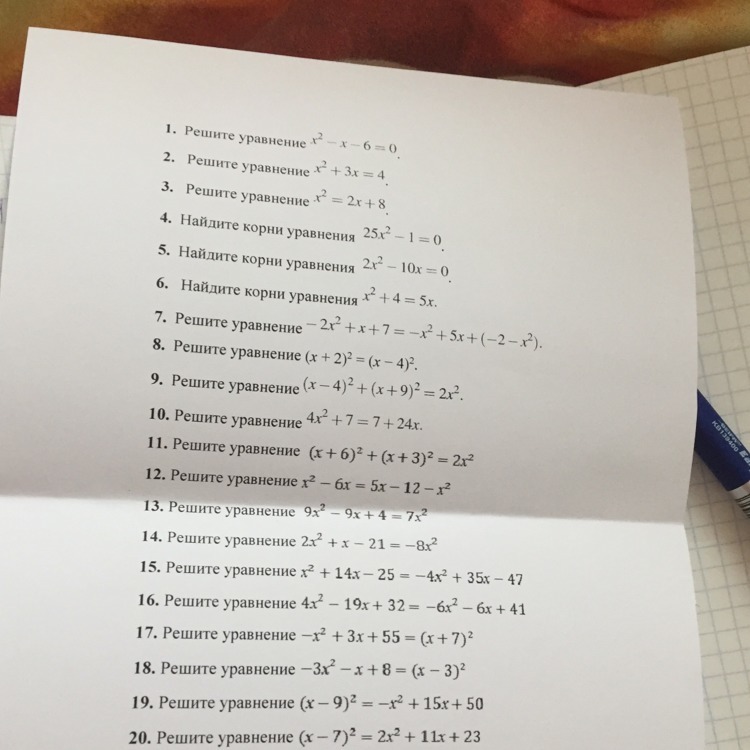 1. Решите уравнение x² − x − 6 = 0.
2. Решите уравнение x² + 3x = 4.
3. Решите уравнение x² = 2x + 8.
4. Найдите корни уравнения 25x² − 1 = 0.
5. Найдите корни уравнения 2x² − 10x = 0.
6. Найдите корни уравнения x² + 4 = 5x.
7. Решите уравнение − 2x² + x + 7 = −x² + 5x + (−2 − x²).
8. Решите уравнение (x + 2)² = (x − 4)².
9. Решите уравнение (x − 4)² + (x + 9)² = 2x².
10. Решите уравнение 4x² + 7 = 7 + 24x.
11. Решите уравнение (x + 6)² + (x + 3)² = 2x²
12. Решите уравнение x² − 6x = 5x − 12 − x²
13. Решите уравнение 9x² − 9x + 4 = 7x²
14. Решите уравнение 2x² + x − 21 = −8x²
15. Решите уравнение x² + 14x − 25 = −4x² + 35x − 47
16. Решите уравнение 4x² − 19x + 32 = −6x² − 6x + 41
17. Решите уравнение −x² + 3x + 55 = (x + 7)²
18. Решите уравнение −3x² − x + 8 = (x − 3)²
19. Решите уравнение (x − 9)² = −x² + 15x + 50
20. Решите уравнение (x − 7)² = 2x² + 11x + 23